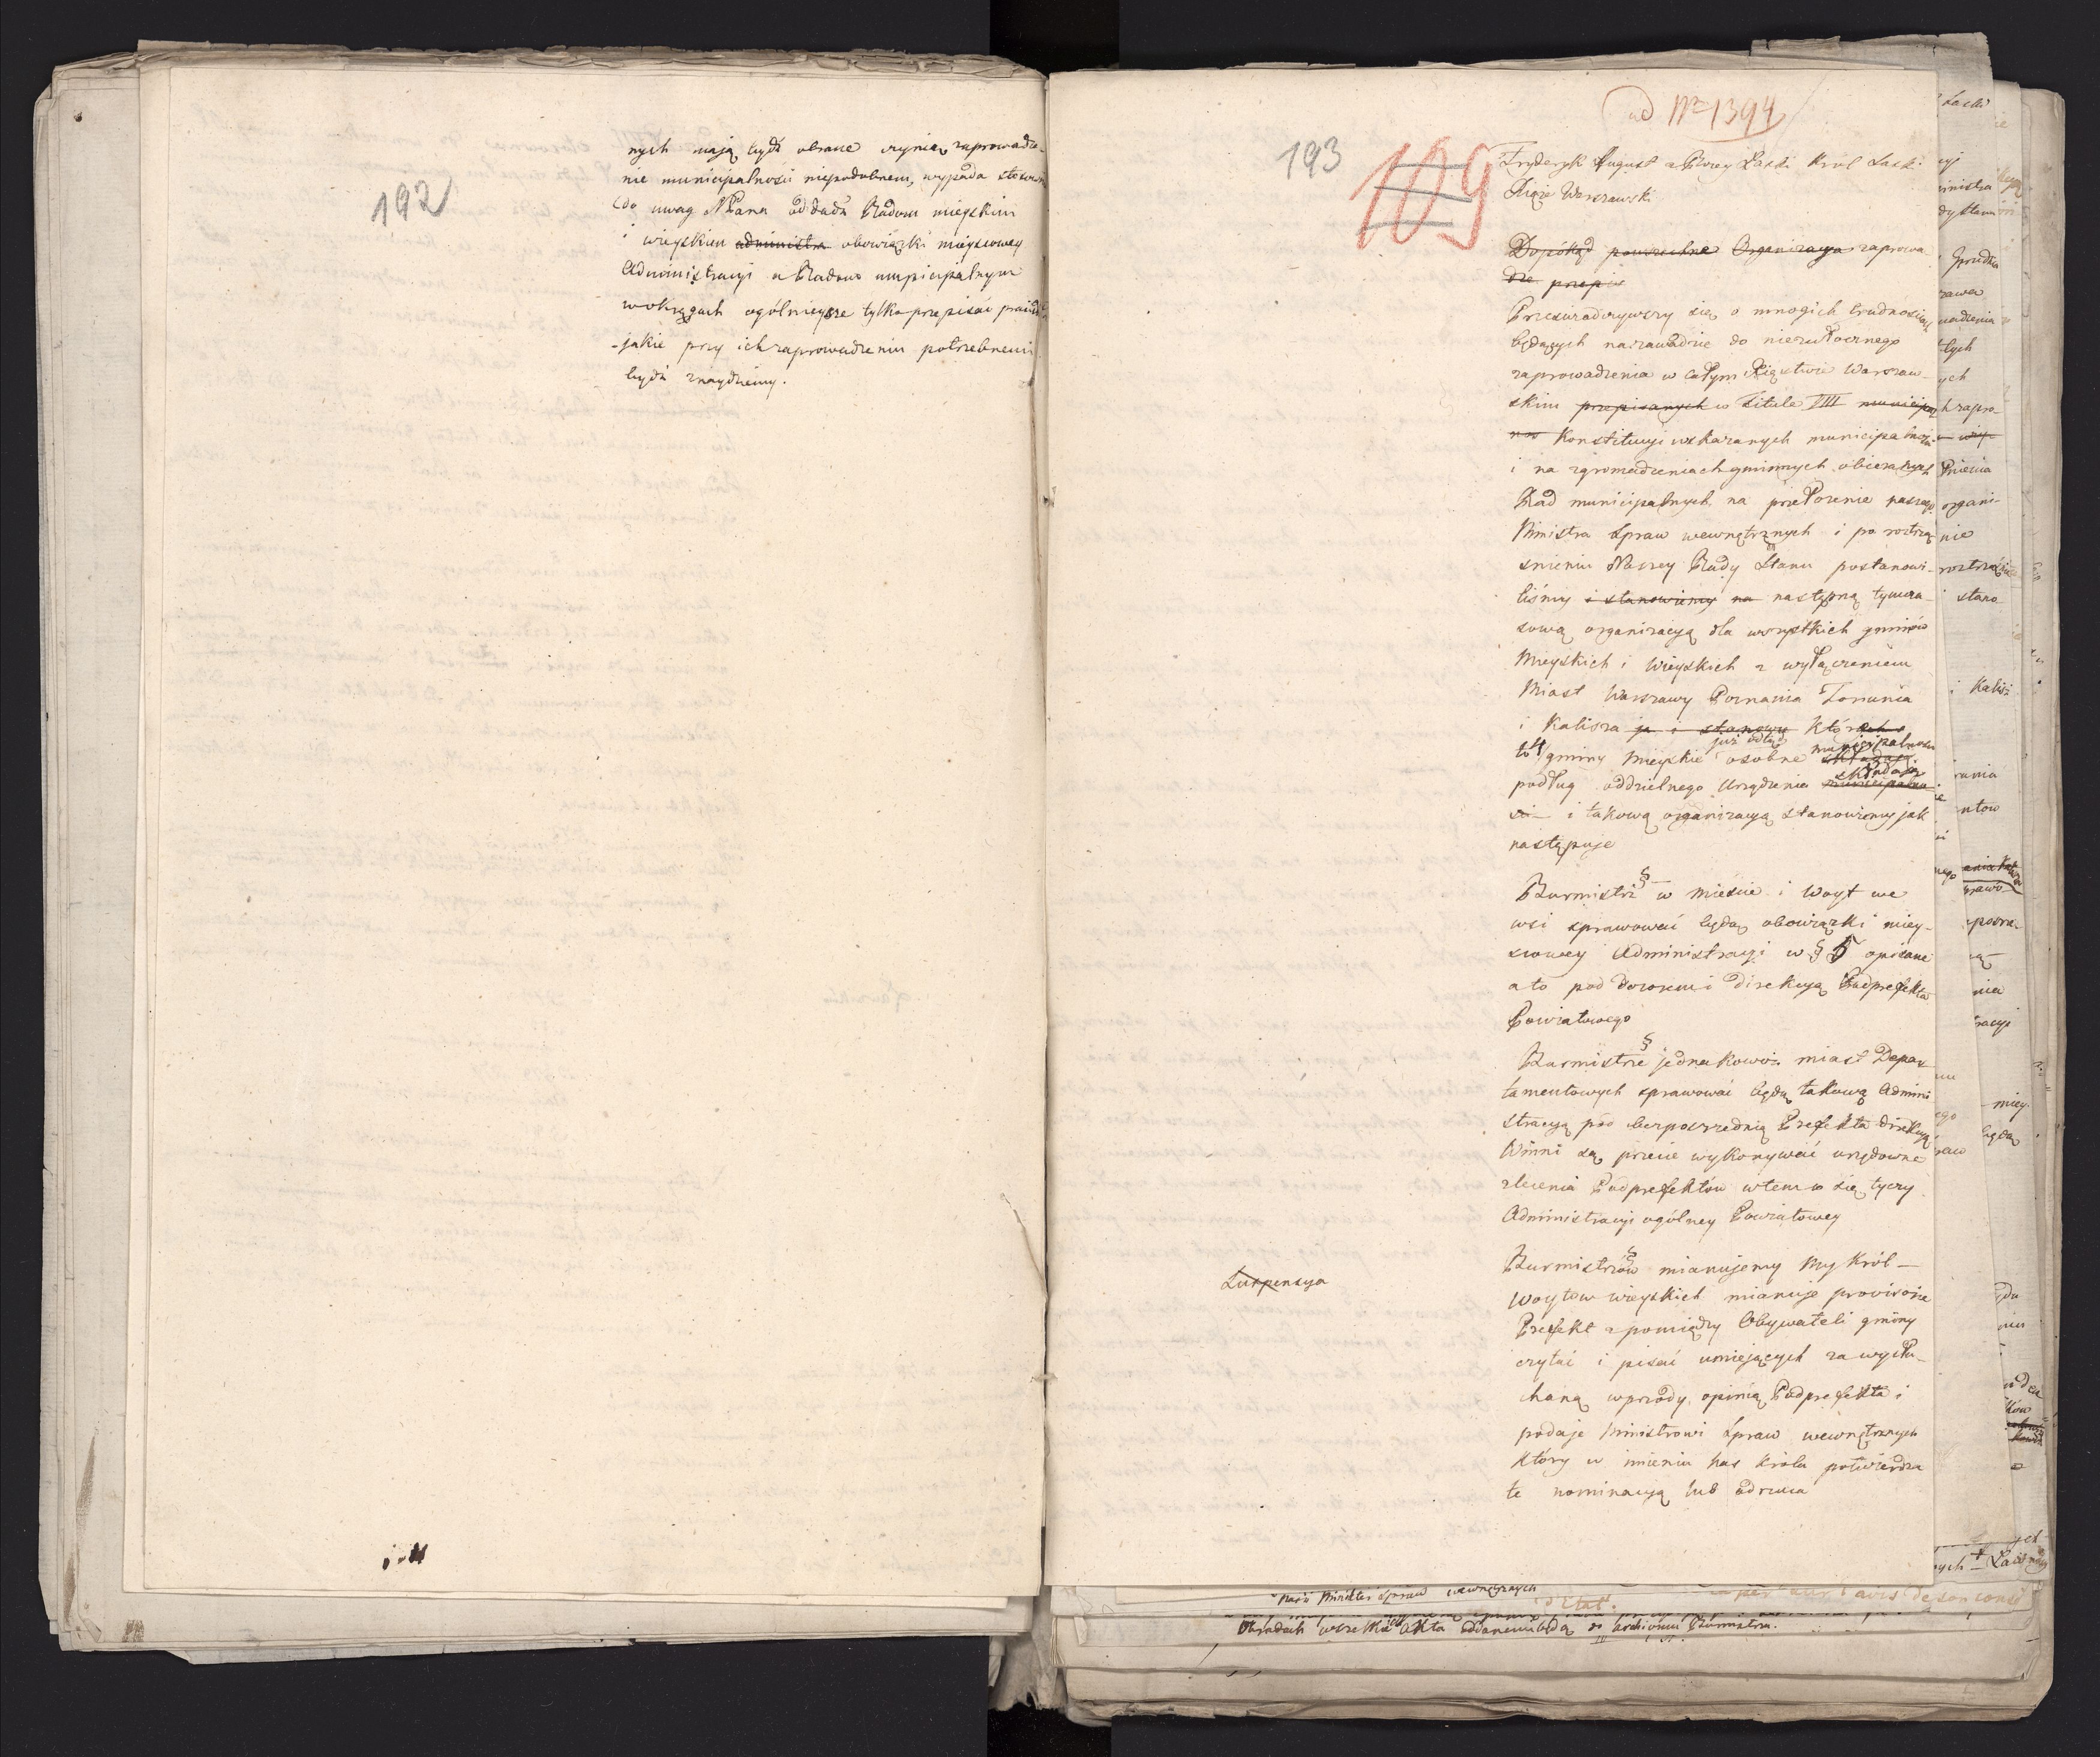 192
nych mają bydź obrane czynią zaprowadze-
nie municipalności niepodobnem, wypada stosown
do uwag NPana oddadź Radom mieyskim
i wieyskim administra obowiązki mieyscowey
Administracyi a Radom municipalnym
w okręgach ogólnieysze tylko przepisać prawidła
jakie przy ich zaprowadzeniu potrzebnemi
bydź znaydziemy.
ad Nro 1394
193
109
Fryderyk August z Bożey Łaski Król Saski
Xiąże Warszawski
Dopókąd powszechna Organizacya zaprowa
dze przepis
Przeświadczywszy się o mnogich trudnościach
będących na zawadzie do niezwłocznego
zaprowadzenia w całym Xięstwie Warszaw-
skim przepisanych w Titule VIII municipal
nos Konstitucyi wskazanych municipalności
i na zgromadzeniach gminnych obieranych
Rad municipalnych, na przełożenie naszego
Ministra Spraw wewnętrznych i po roztrzą
śnieniu Naszey Rady Stanu postanowi-
liśmy i stanowiemy na następną tymcza-
sową organizacyą dla wszystkich gminów
Mieyskich i Wieyskich z wyłączeniem
Miast Warszawy Poznania Torunia
i Kalisza ja i stanowy które
to 4 gminy Mieyskie już odtąd osobne składają municipalności
podług oddzielnego Urządzenia municipalno składają
ści i takową organizacyą stanowiemy jak
następuje
§
Burmistrz w mieście i Woyt we
wsi sprawować będą obowiązki miey-
scowey Administracyi w § 5 opisane
a to pod dozorem i direkcyą Podprefekta
Powiatowego
§
Burmistrze jednakowoż miast Depar
tamentowych sprawować będą takową Admini
stracyą pod bezposrzednią Prefekta direkcyą
Winni są przecie wykonywać urzędowne
zlecenia Podprefektów w tem co się tyczy
Administracyi ogólney Powiatowey
§
Burmistrzów mianujemy My Król —
Suspensya
Woytow wieyskich mianuje provisorie
Prefekt z pomiędzy Obywateli gminy
czytać i pisać umiejących za wysłu-
chaną wprzódy opinią Podprefekta i
podaje Ministrowi Spraw wewnętrznych
który w imieniu Nas Króla potwierdza
te nominacyą lub odrzuca
nasz Minister Spraw wewnętrznych
d'Etat.
avis de son conseil
Obradach wszelkie Akta oddanemi będą do Archiwum Burmistrza.